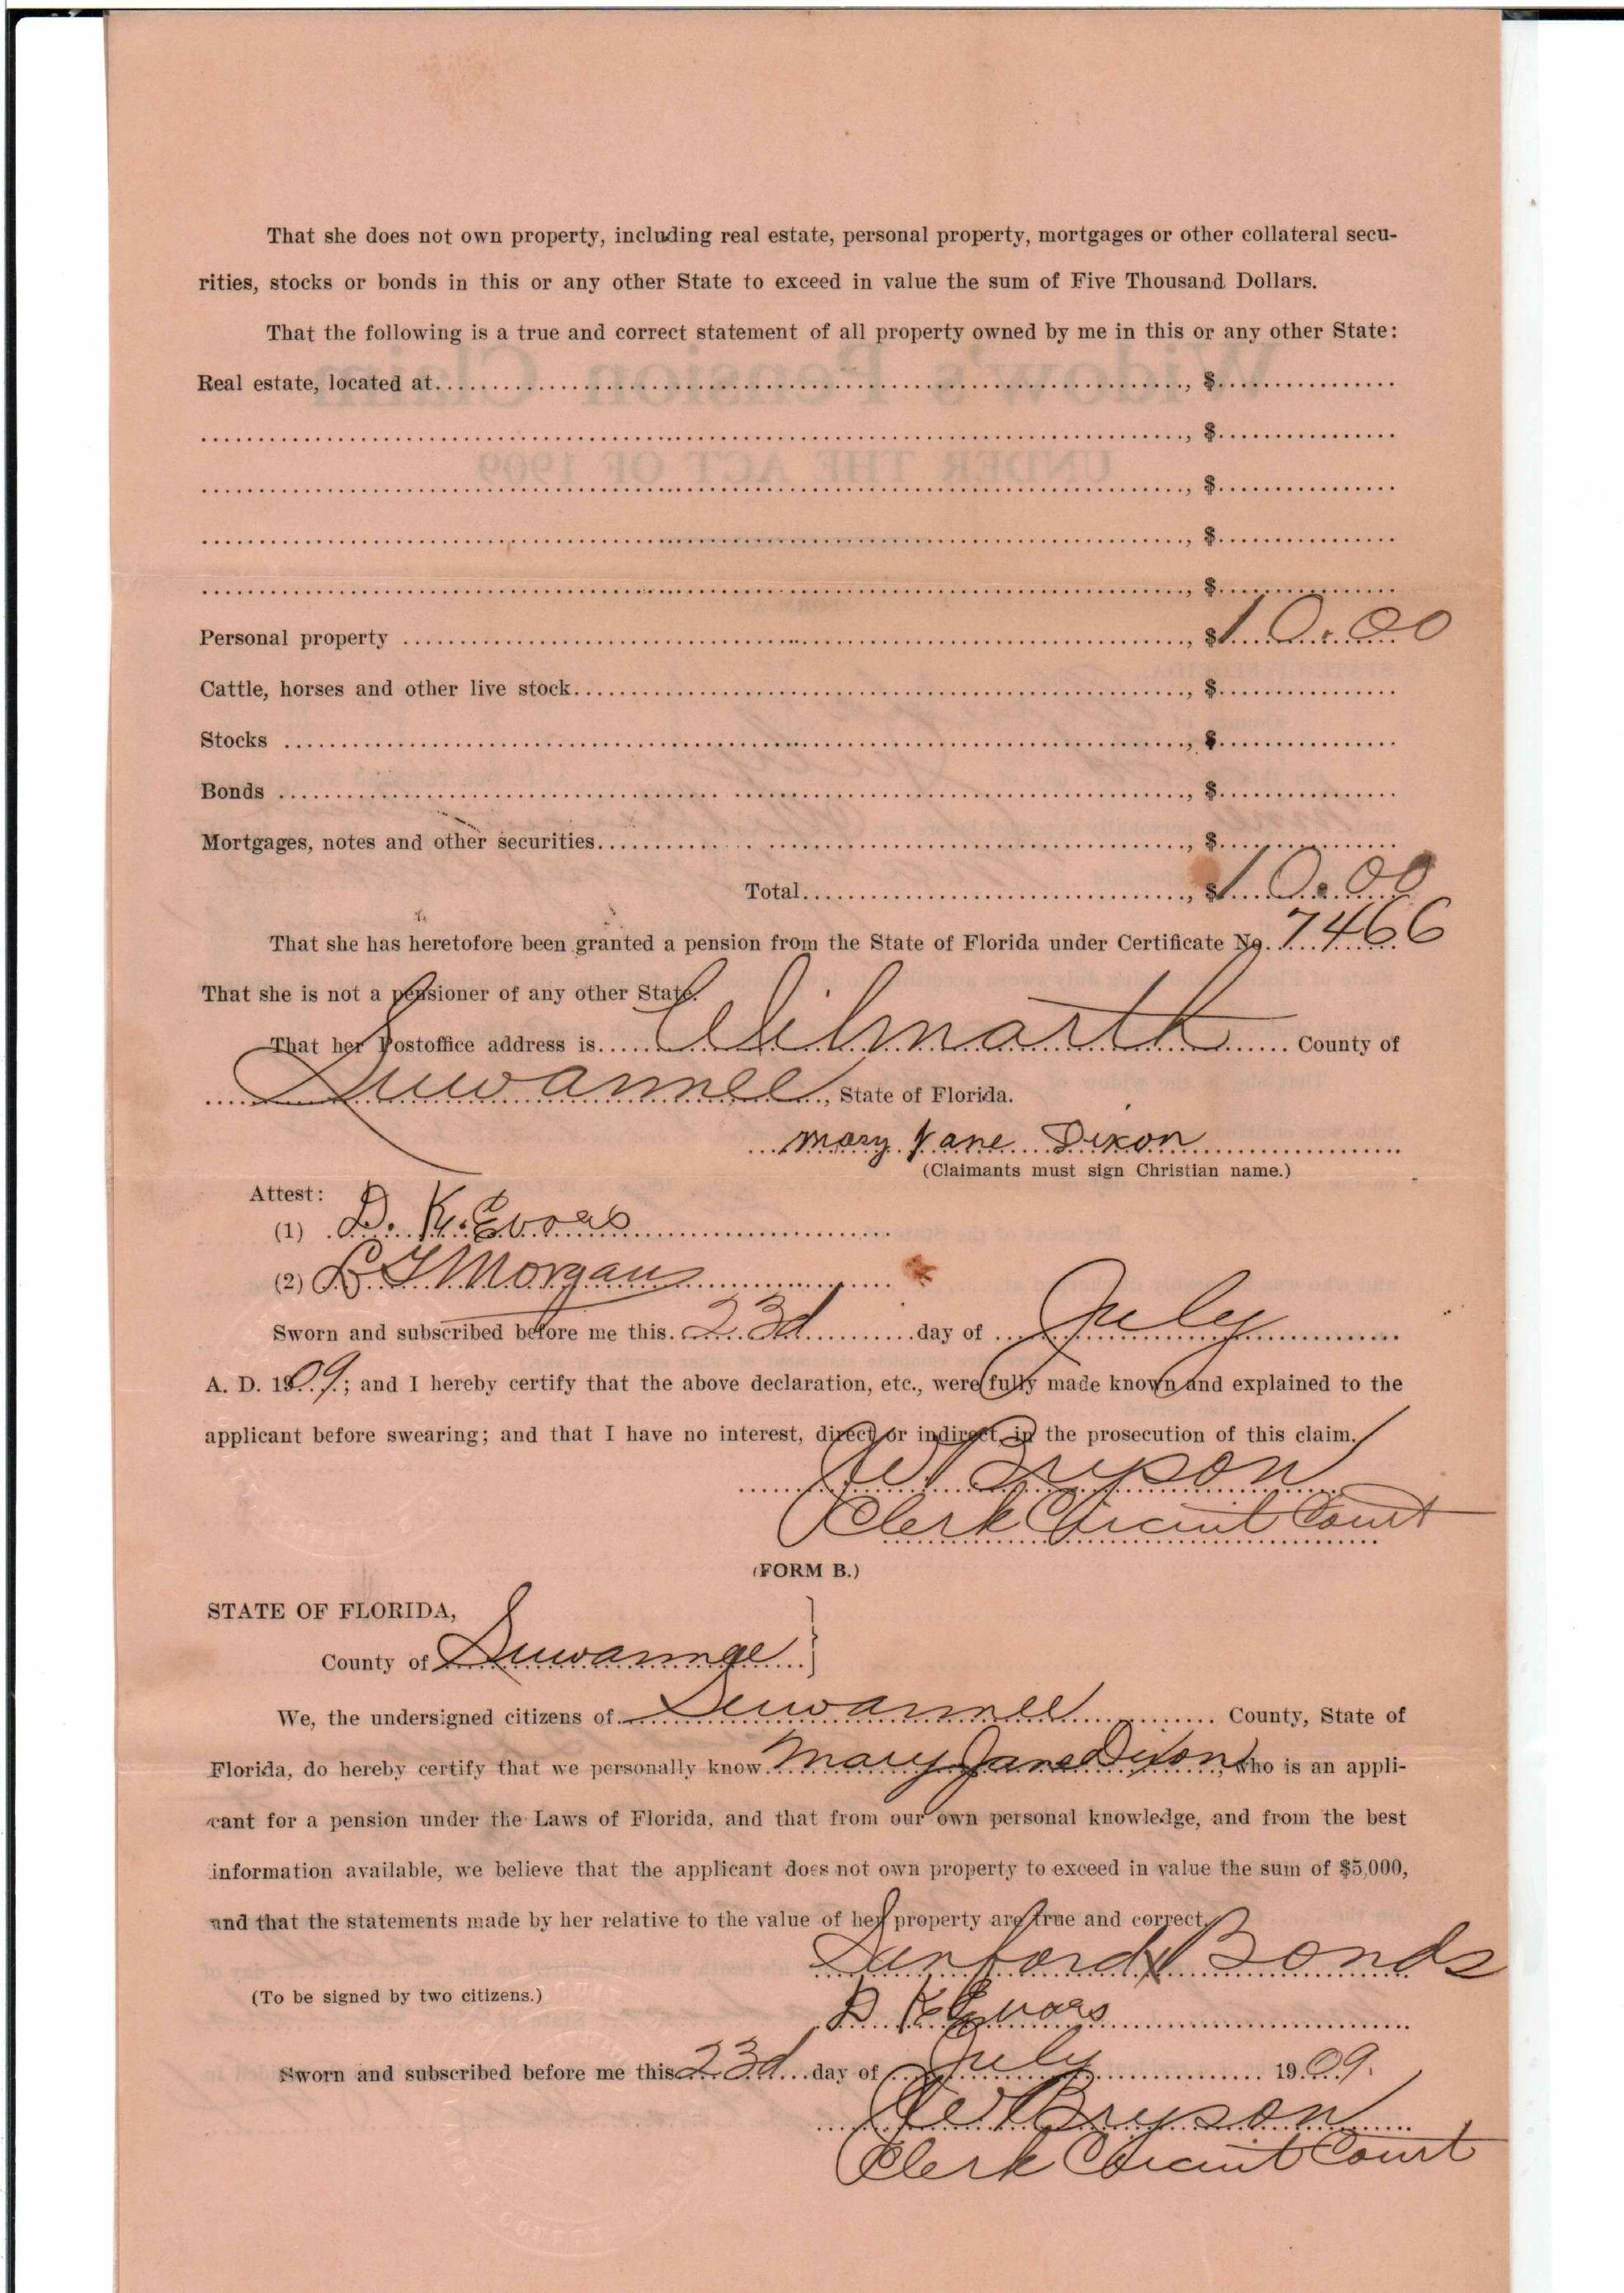 That she does not own property, including real estate, personal property, mortgages or other collateral secu-
rities, stocks or bonds in this or any other State to exceed in value the sum of Five Thousand Dollars.
That the following is a true and correct statement of all property owned by me in this or any other State:
Real estate, located at , $
, $
, $
, $
, $
Personal property , $10.00
Cattle, horses and other live stock , $
Stocks , $
Bonds , $
Mortgages, notes and other securities , $
Total , $10.00
That she has heretofore been granted a pension from the State of Florida under Certificate No. 7466
That she is not a pensioner of any other State.
That her Postoffice address is Wilmarth County of
Suwannee, State of Florida.
Mary Jane Dixon
(Claimants must sign Christian name.)
Attest:
(1) D. K. Evors
(2) Morgan
Sworn and subscribed before me this 23d day of July
A. D. 1909; and I hereby certify that the above declaration, etc., were fully made known and explained to the
applicant before swearing; and that I have no interest, direct or indirect, in the prosecution of this claim.
Bryson
Clerk Circuit Court
(FORM B.)
STATE OF FLORIDA,
County of Suwannee
We, the undersigned citizens of Suwannee County, State of
Florida, do hereby certify that we personally know Mary Jane Dixon, who is an appli-
cant for a pension under the Laws of Florida, and that from our own personal knowledge, and from the best
information available, we believe that the applicant does not own property to exceed in value the sum of $5,000,
and that the statements made by her relative to the value of her property are true and correct.
Sanford X Bonds
(To be signed by two citizens.)
D K Evors
Sworn and subscribed before me this 23d day of July 1909.
Bryson
Clerk Circuit Court